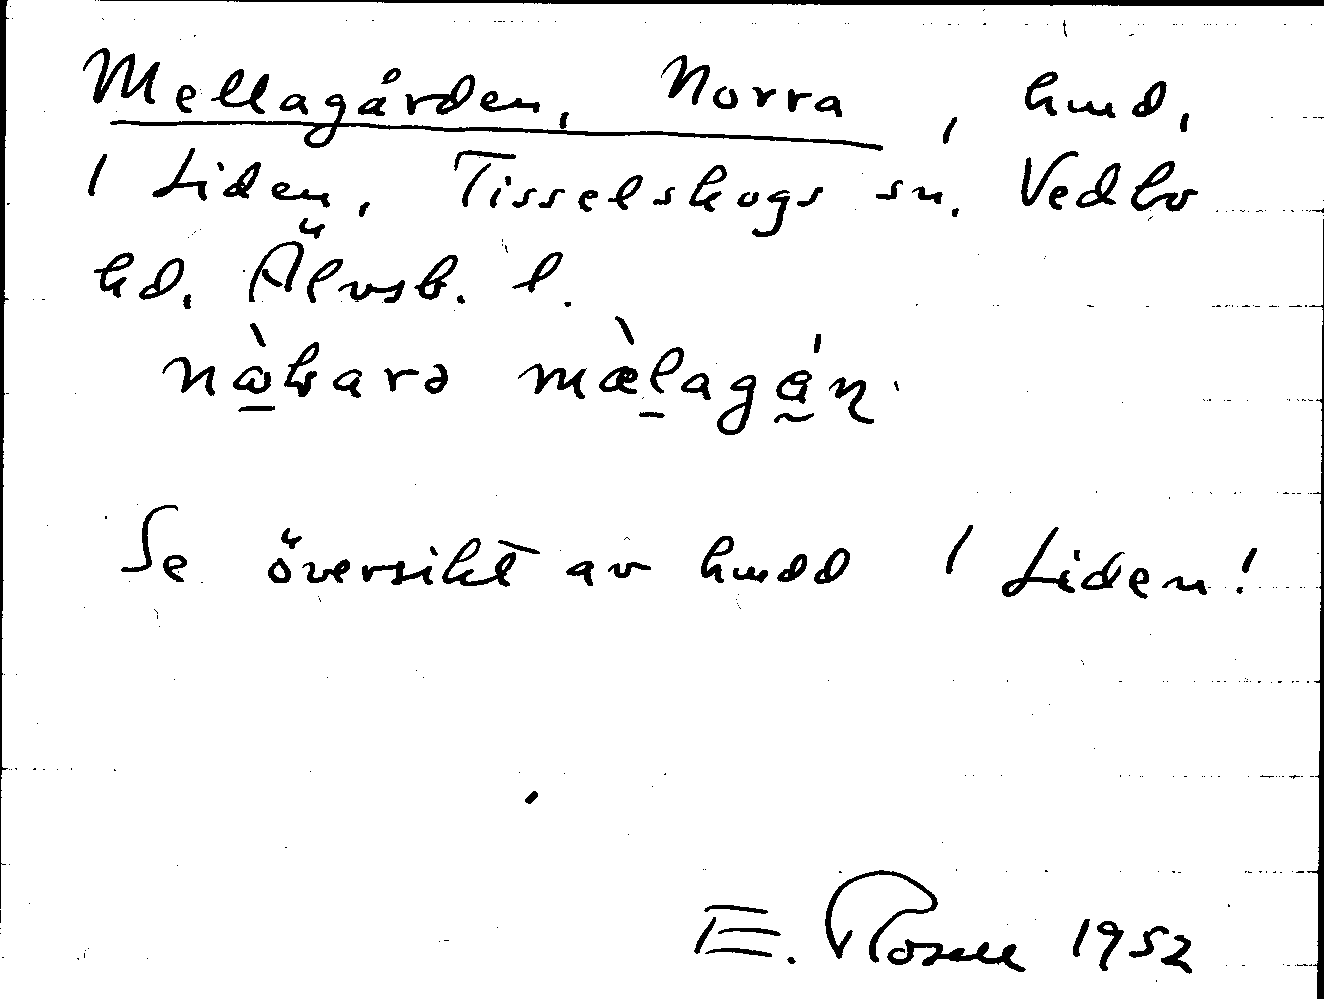 Mellagården, Norra, hmd,
1 Liden, Tisselskogs sn. Vedbo
hd. Älvsb. l.
nò̱karə mæ̀ḻagá̰ɳ
Se översikt av hmdd 1 Liden!
E. Rosell 1952